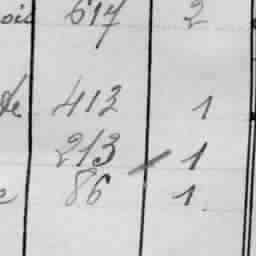 ois 617 2
te 413 1
213 1
e 86 1